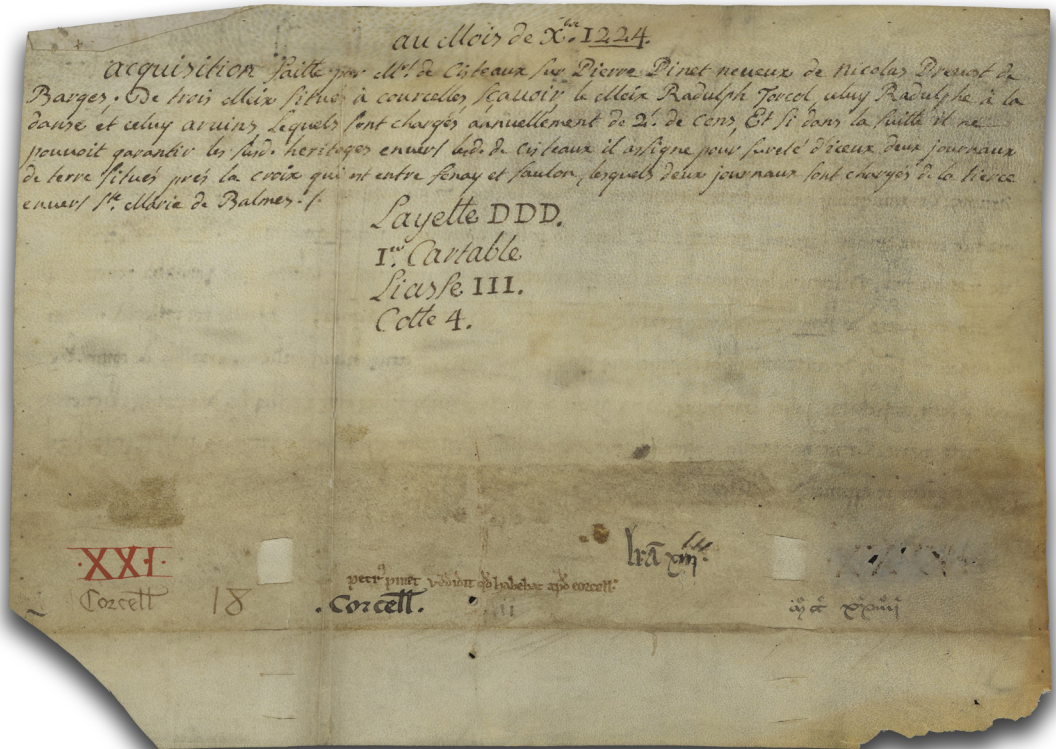 au Mois de Xbre. 1224.
acquisition faitte par Mrs. de Cisteaux sur Pierre Pinet neueux de Nicolas Preuost de
Barges. De trois Meix situés à courcelles sçauoir le Meix Radulph Torcol, celuy Radulphe à la
danse et celuy aruins, lequels sont chargés annuellement de 2s. de Cens, Et si dans la suitte il ne
pouuoit garantir les susd. heritages enuers lesd. de Cisteaux il assigne pour sureté d'iceux deux journaux
de terre situés prés la croix qui est entre fenay et saulon, lesquels deux journaux sont chargés de la tierce
enuers Ste. Marie de Balmes. /.
Layette DDD.
Ier. Cartable
Liasse III.
Cotte 4.
XXI.
lra xiiij
petrus pinet vendidit qd habebat apd corcell.
Corcell 18 . Corcell.